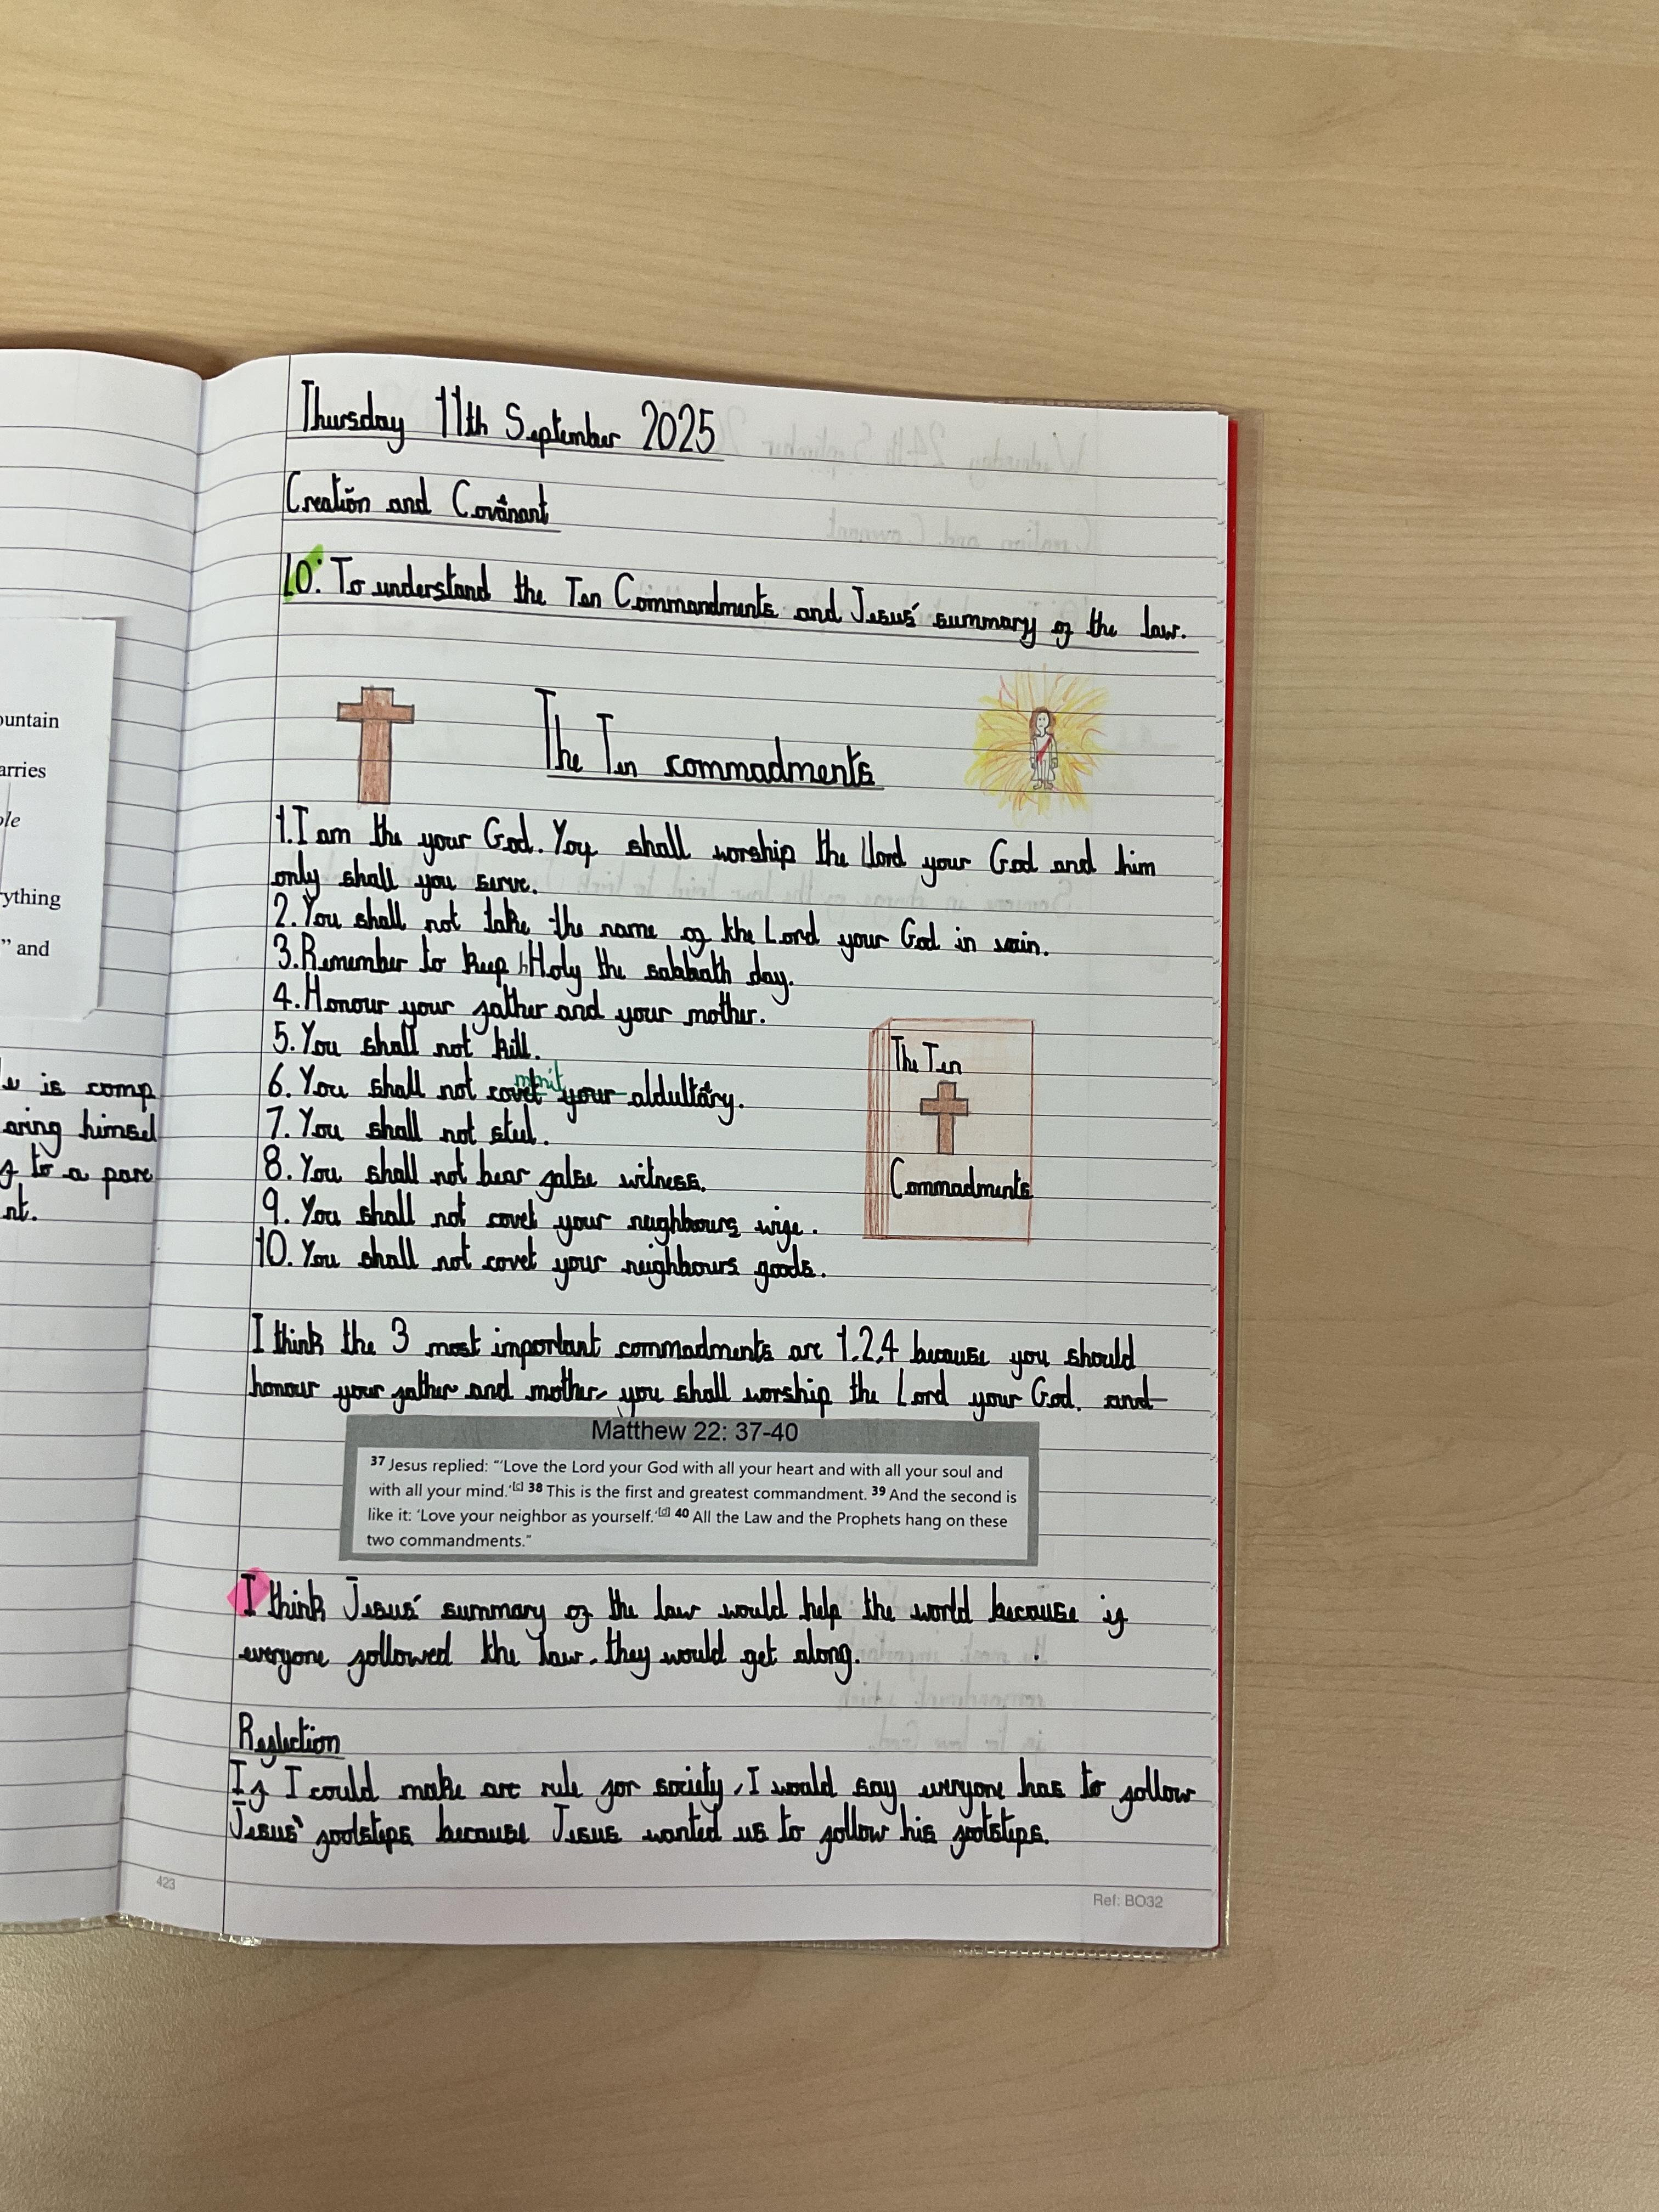 Thursday 11th September 2025
Creation and Covanant
LO: To understand the Ten Commandments and Jesus' summary of the law.
The Ten commadments
1. I am the your God. You shall worship the Lord your God and him
only shall you serve.
2. You shall not take the name of the Lord your God in vain.
3. Remember to keep Holy the sabbath day.
4. Honour your father and your mother.
5. You shall not kill.
6. You shall not covet mmit your aldultary.
7. You shall not steel.
8. You shall not bear false witness.
9. You shall not covet your neighbours wife.
10. You shall not covet your neighbours goods.
The Ten
Commadments
I think the 3 most important commadments are 1,2,4 because you should
honour your father and mother, you shall worship the Lord your God. and
Matthew 22: 37-40
37 Jesus replied: "'Love the Lord your God with all your heart and with all your soul and
with all your mind.'[c] 38 This is the first and greatest commandment. 39 And the second is
like it: 'Love your neighbor as yourself.'[d] 40 All the Law and the Prophets hang on these
two commandments."
I think Jesus' summary of the law would help the world because if
everyone followed the law, they would get along.
Reflection
If I could make are rule for society, I would say everyone has to follow
Jesus' footsteps because Jesus wanted us to follow his footsteps.
423
Ref: BO32
ountain
arries
ole
ything
" and
is comp
aring himsel
to a pare
nt.